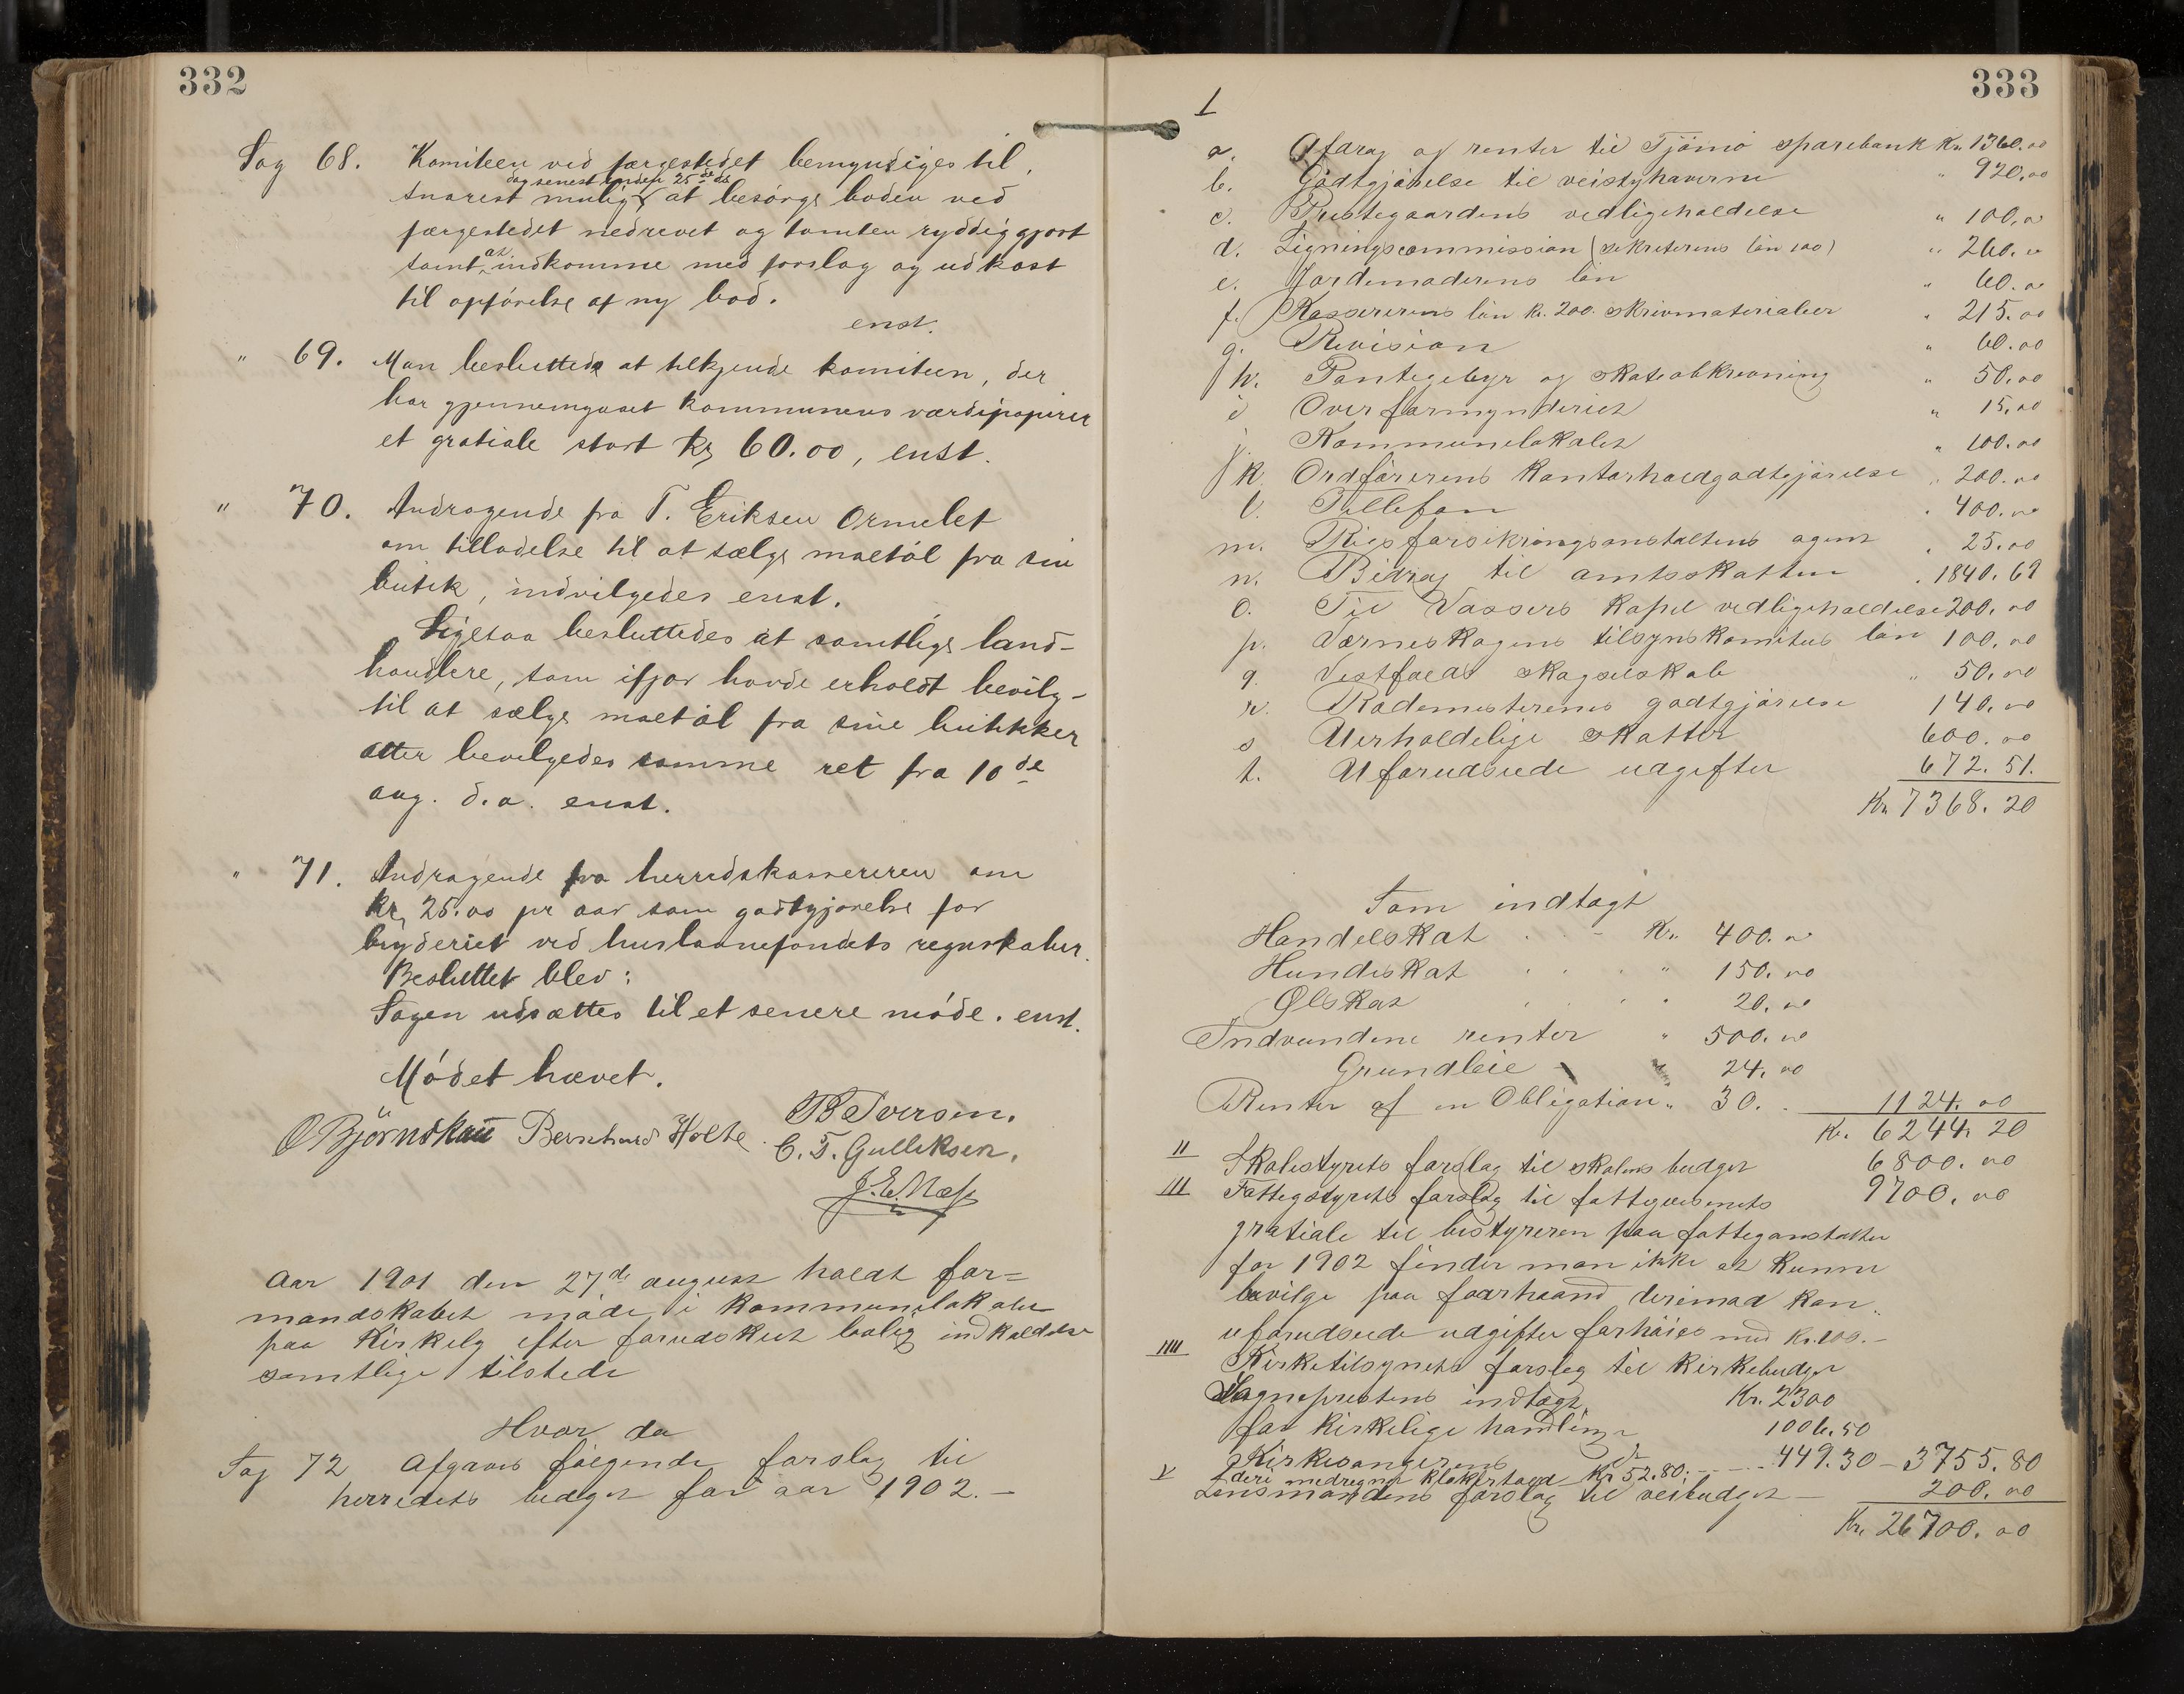 332
Sag 68. Komiteen ved færgestedet bemyndiges til,
dog senest inden 25de ds
snarest mulig at besørge boden ved
færgestedet nedrevet og tomten ryddiggjort
samt at indkomme med forslag og udkast
til opførelse af ny bod.
enst.
" 69. Man besluttede at tilkjende komiteen, der
har gjennemgaaet kommunens værdipapirer
et gratiale stort kr 60.00, enst.
" 70. Andragende fra T. Eriksen Ormelet
om tilladelse til at sælge maltøl fra sin
butik, indvilgedes enst.
Ligesaa besluttedes at samtlige land-
handlere, som ifjor havde erholdt bevilg-
til at sælge maltøl fra sine butikker
atter bevilgedes samme ret fra 10de
aug. d.a. enst.
" 71. Andragende fra herredskassereren om
kr 25.00 pr aar som godtgjørelse for
bryderiet ved huslaanefondets regnskaber.
Besluttet blev:
Sagen udsættes til et senere møde. enst.
Mødet hævet.
O Bjørnskau Bernhard Holte B Iversen.
C. F. Gulliksen.
J. E. Næss
Aar 1901 den 27de august holdt for=
mandskabet møde i kommunelokalet
paa Kirkely efter forudskeet lovlig indkaldelse
samtlige tilstede
Hvor da
Sag 72 Afgaves følgende forslag til
herredets budget for aar 1902.-
333
I
a. Afdrag og renter til Tjømø sparebank Kr. 1360.00
b. Godtgjørelse til veistyhaverne " 920.00
c. Prestegaardens vedligeholdelse " 100.00
d. Ligningscommission (sekreterens løn 100) " 260.00
e. Jordemoderens løn " 60.00
f. Kassererens løn kr. 200. skrivmaterialier " 215.00
g. Revision " 60.00
h. Pantegebyr og skateabkrævning " 50.00
i Overformynderiet " 15.00
j. Kommunelokalet " 100.00
k. Ordførerens Kontorholdgodtgjørelse " 200.00
l. Tellefon " 400.00
m. Rigsforsikringsanstaltens agent " 25.00
n. Bidrag til amtsskatten " 1840.69
o. Til Vassers Kapel vedligeholdelse 200.00
p. Værneskogens tilsynskomites løn 100.00
q. Vestfolds skogselskab " 50.00
r. Rodemesterens godtgjørelse 140.00
s Uerholdelige skatter 600.00
t. Uforudseede udgifter 672.51.
Kr. 7368.20
Som indtægt
Handelskat Kr. 400.00
Hundeskat " 150.00
Ølskat " 20.00
Indvundne renter " 500.00
Grundleie 24.00
Renter af en Obligation " 30. 1124.00
Kr. 6244.20
II Skolestyrets forslag til skolens budget 6800.00
III Fattigstyrets forslag til fattigvæsenets 9700.00
gratiale til bestyreren paa fattiganstalten
for 1902 finder man ikke at kunne
bevilge paa forhaand derimod kan
uforudseede udgifter forhøies med kr. 100.-
IIII Kirketilsynets forslag til Kirkebudget
Sogneprestens indtægt Kr. 2300
for kirkelige handlinger 1006.50
Kirkesangerens dt 449.30 - 3755.80
deri medregnet klokkertold Kr 52.80.
V Lensmandens forslag til veibudget - 200.00
Kr. 26700.00